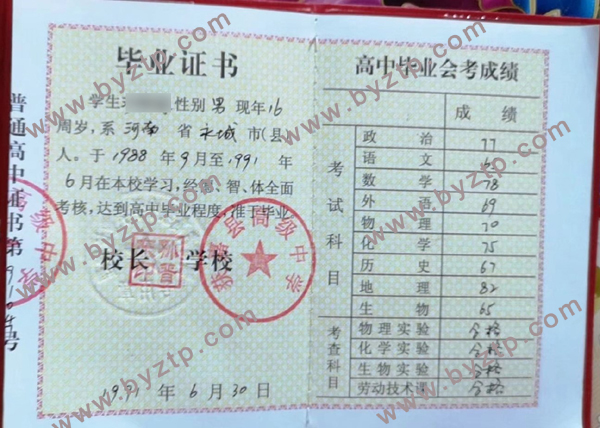 毕业证书
学生 性别 男 现年 16
周岁,系 河南 省 永城 市(县
人。于 1988 年 9 月至 1991 年
6 月在本校学习,经德、智、体全面
考核,达到高中毕业程度,准予毕业
校长 学校
1991 年 6 月 30 日
普通高中证书第 号
县高级中学
高中毕业会考成绩
成绩
考试科目
政治 77
语文
数学 78
外语 69
物理 70
化学 75
历史 67
地理 82
生物 65
考查科目
物理实验 合格
化学实验 合格
生物实验 合格
劳动技术课 合格
www.byztp.com